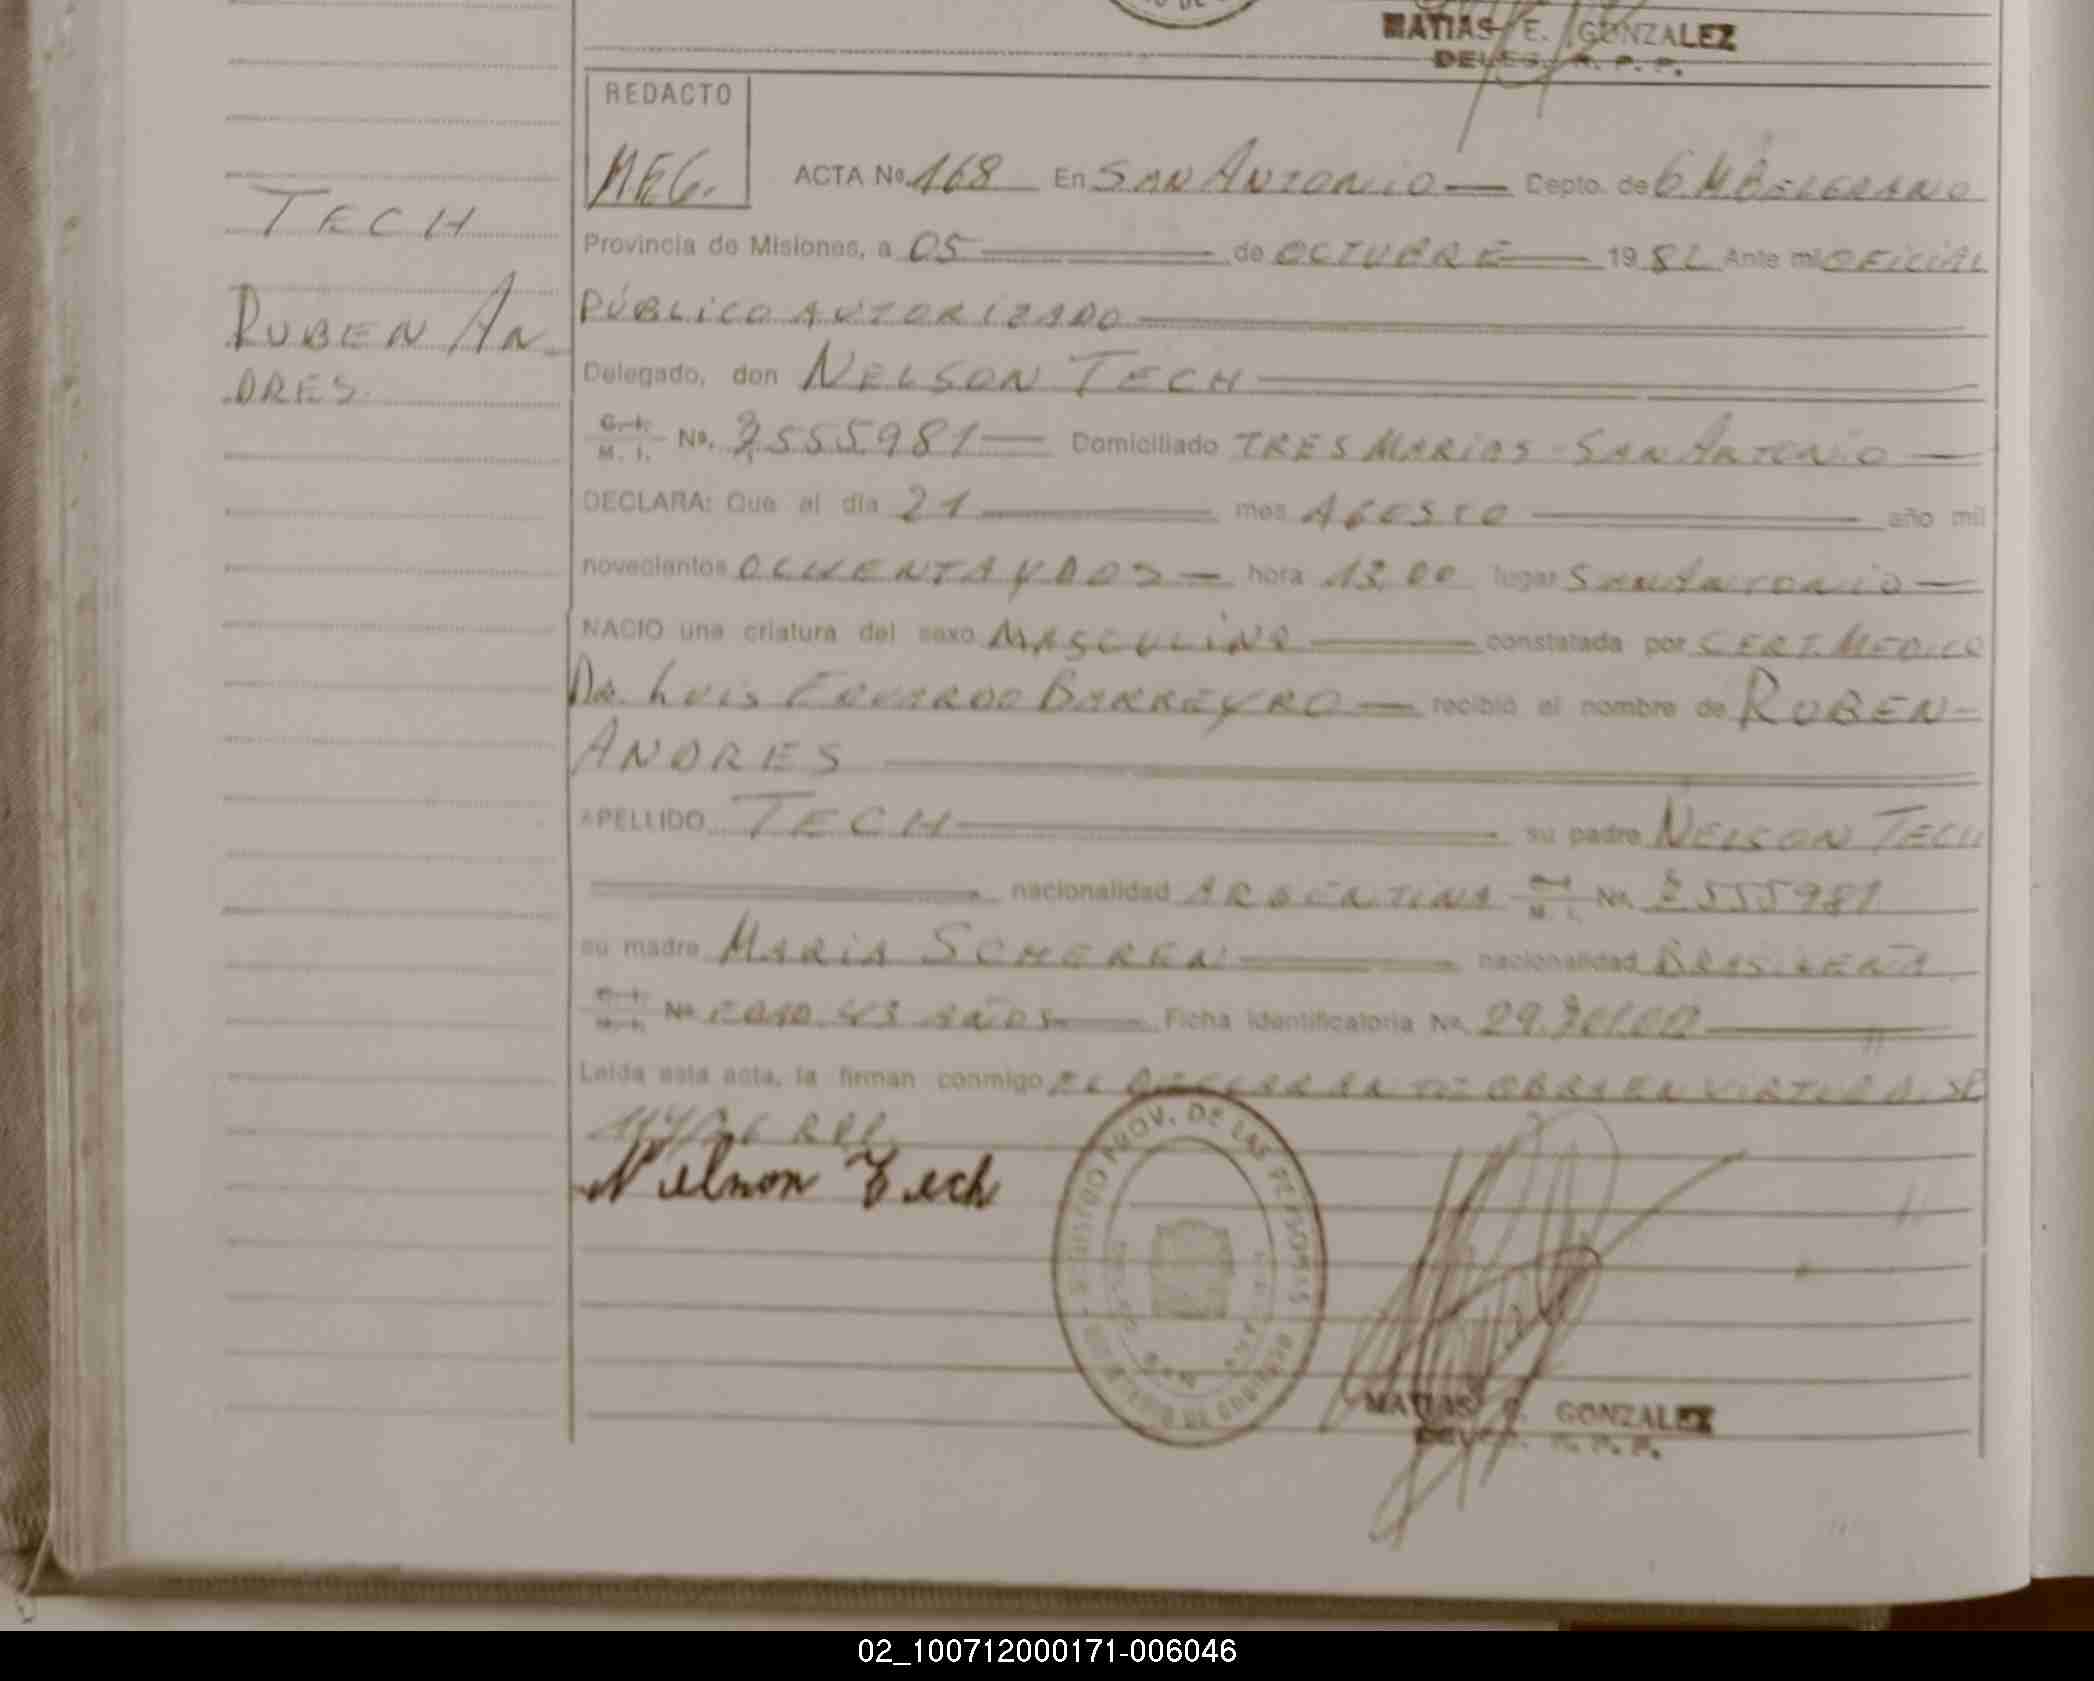 MATIAS E. GONZALEZ
DELEG. R. P. P.
REDACTO
MEG.
ACTA No. 168 En SAN ANTONIO Depto. de G M BELGRANO
TECH
Provincia de Misiones, a 05 de OCTUBRE 1982 Ante mi OFICIAL
RUBEN AN-
PÚBLICO AUTORIZADO
DRES.
Delegado, don NELSON TECH
C. I.
M. I. No. 555.981 Domiciliado TRES MARIAS - SAN ANTONIO
DECLARA: Que el día 21 mes AGOSTO año mil
novecientos OCHENTA Y DOS hora 13,00 lugar SAN ANTONIO
NACIO una criatura del sexo MASCULINO constatada por CERT. MEDICO
DR. LUIS EDUARDO BARREYRO recibió el nombre de RUBEN
ANDRES
APELLIDO TECH su padre NELSON TECH
nacionalidad ARGENTINA M. I. No. 555981
su madre MARIA SCHEREN nacionalidad BRASILEÑA
C. I.
M. I. No. EDAD 43 AÑOS Ficha Identificatoria No. 29.
Leída esta acta, la firman conmigo EL DECLARANTE OBRA EN VIRTUD. SE
Nelson Tech
REGISTRO PROV. DE LAS PERSONAS
MINISTERIO DE GOBIERNO
MATIAS E. GONZALEZ
DELEG. R. P. P.
02_100712000171-006046